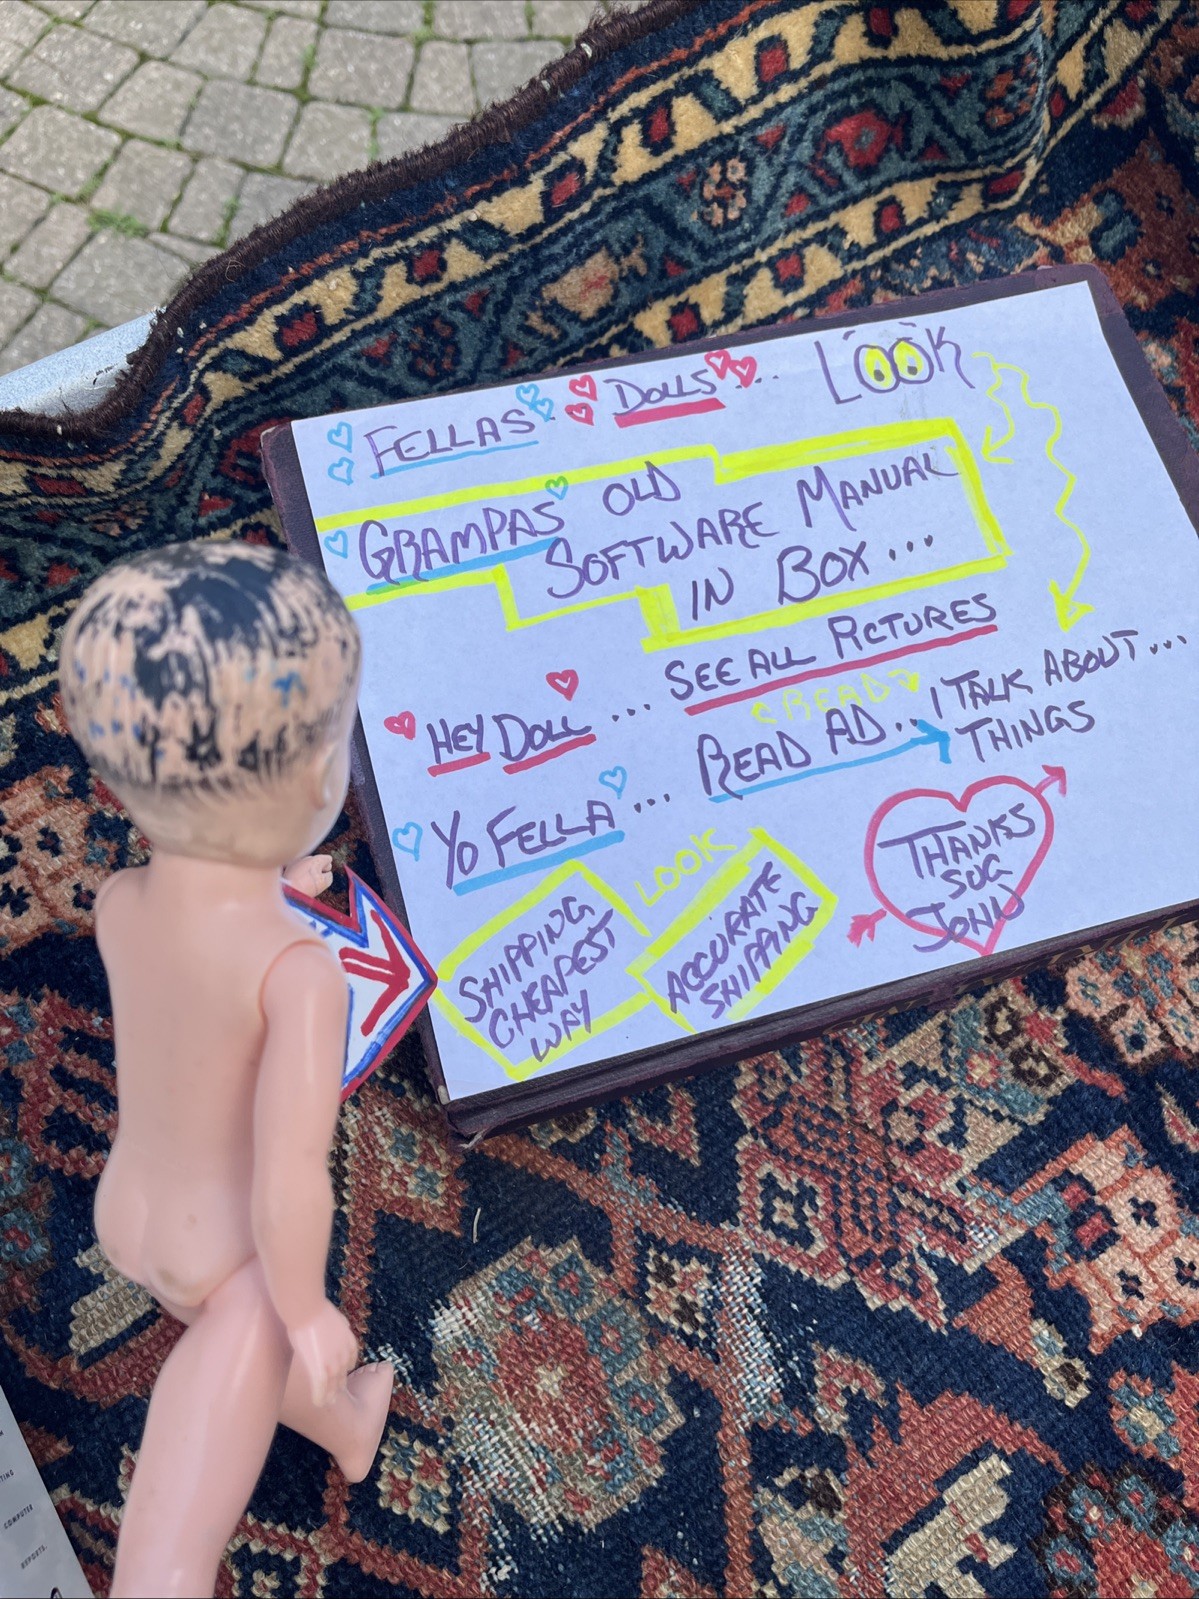 FELLAS.. DOLLS... LOOK
GRAMPAS OLD
SOFTWARE MANUAL
IN BOX...
HEY DOLL... SEE ALL PICTURES
READ
YO FELLA... READ AD.. I TALK ABOUT...
THINGS
LOOK
SHIPPING
CHEAPEST
WAY
ACCURATE
SHIPPING
THANKS
SUG
JOHN
COMPUTER
REPORTS.